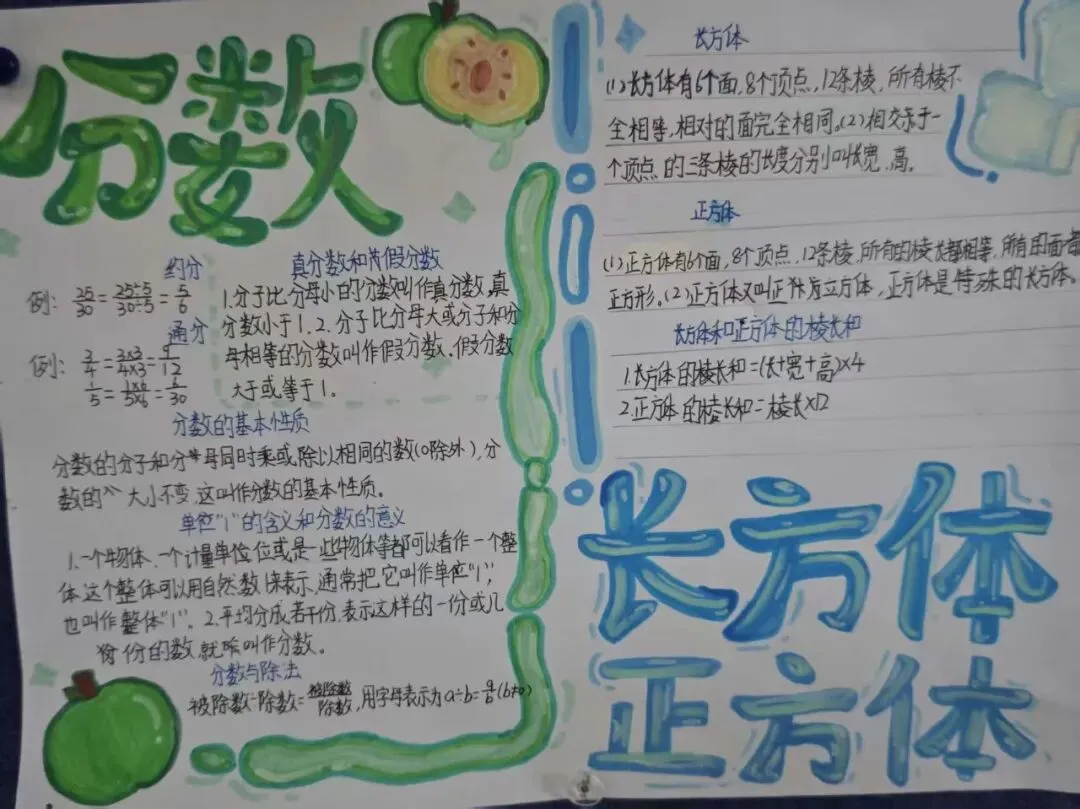 分数
约分
例: 25/30=25÷5/30÷5=5/6
通分
例: 3/4=3×3/4×3=9/12
1/5=1×6/5×6=6/30
真分数和假分数
1.分子比分母小的分数叫作真分数,真
分数小于1.2.分子比分母大或分子和分
母相等的分数叫作假分数.假分数
大于或等于1.
分数的基本性质
分数的分子和分母同时乘或除以相同的数(0除外),分
数的大小不变,这叫作分数的基本性质。
单位"1"的含义和分数的意义
1.一个物体、一个计量单位或是一些物体等都可以看作一个整
体,这个整体可以用自然数1来表示,通常把它叫作单位"1",
也叫作整体"1"。2.平均分成若干份,表示这样的一份或几
份的数,就叫作分数。
分数与除法
被除数÷除数=被除数/除数,用字母表示为a÷b=a/b(b≠0)
长方体
(1)长方体有6个面,8个顶点,12条棱,所有棱不
全相等,相对的面完全相同。(2)相交于一
个顶点的三条棱的长度分别叫长、宽、高。
正方体
(1)正方体有6个面,8个顶点,12条棱,所有的棱长都相等,所有的面都
正方形。(2)正方体又叫立方体,正方体是特殊的长方体。
长方体和正方体的棱长和
1.长方体的棱长和=(长+宽+高)×4
2.正方体的棱长和=棱长×12
长方体
正方体